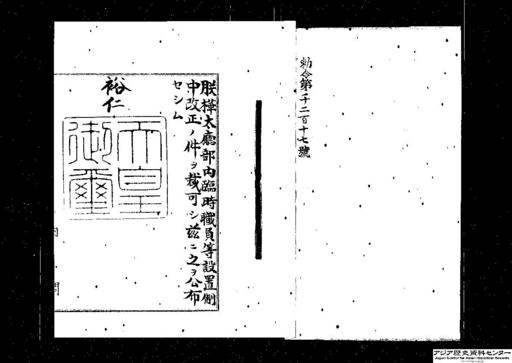 勅令第千二百十七號
朕樺太廳部內臨時職員等設置制
中改正ノ件ヲ裁可シ茲ニ之ヲ公布
セシム
裕仁
天皇
御璽
アジア歴史資料センター
Japan Center for Asian Historical Records